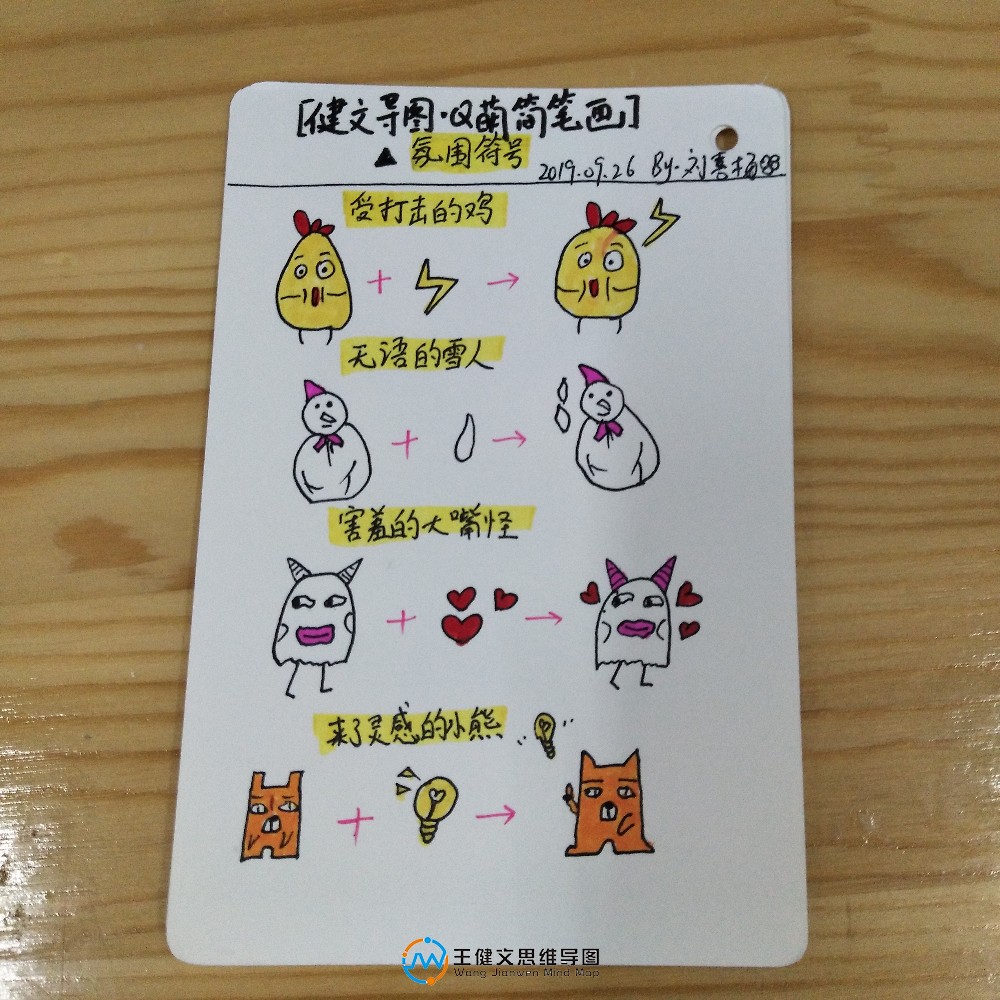 [健文导图·Q萌简笔画]
▲ 氛围符号
2019.09.26 By.刘喜
受打击的鸡
无语的雪人
害羞的大嘴怪
来了灵感的小熊
王健文思维导图
Wang Jianwen Mind Map